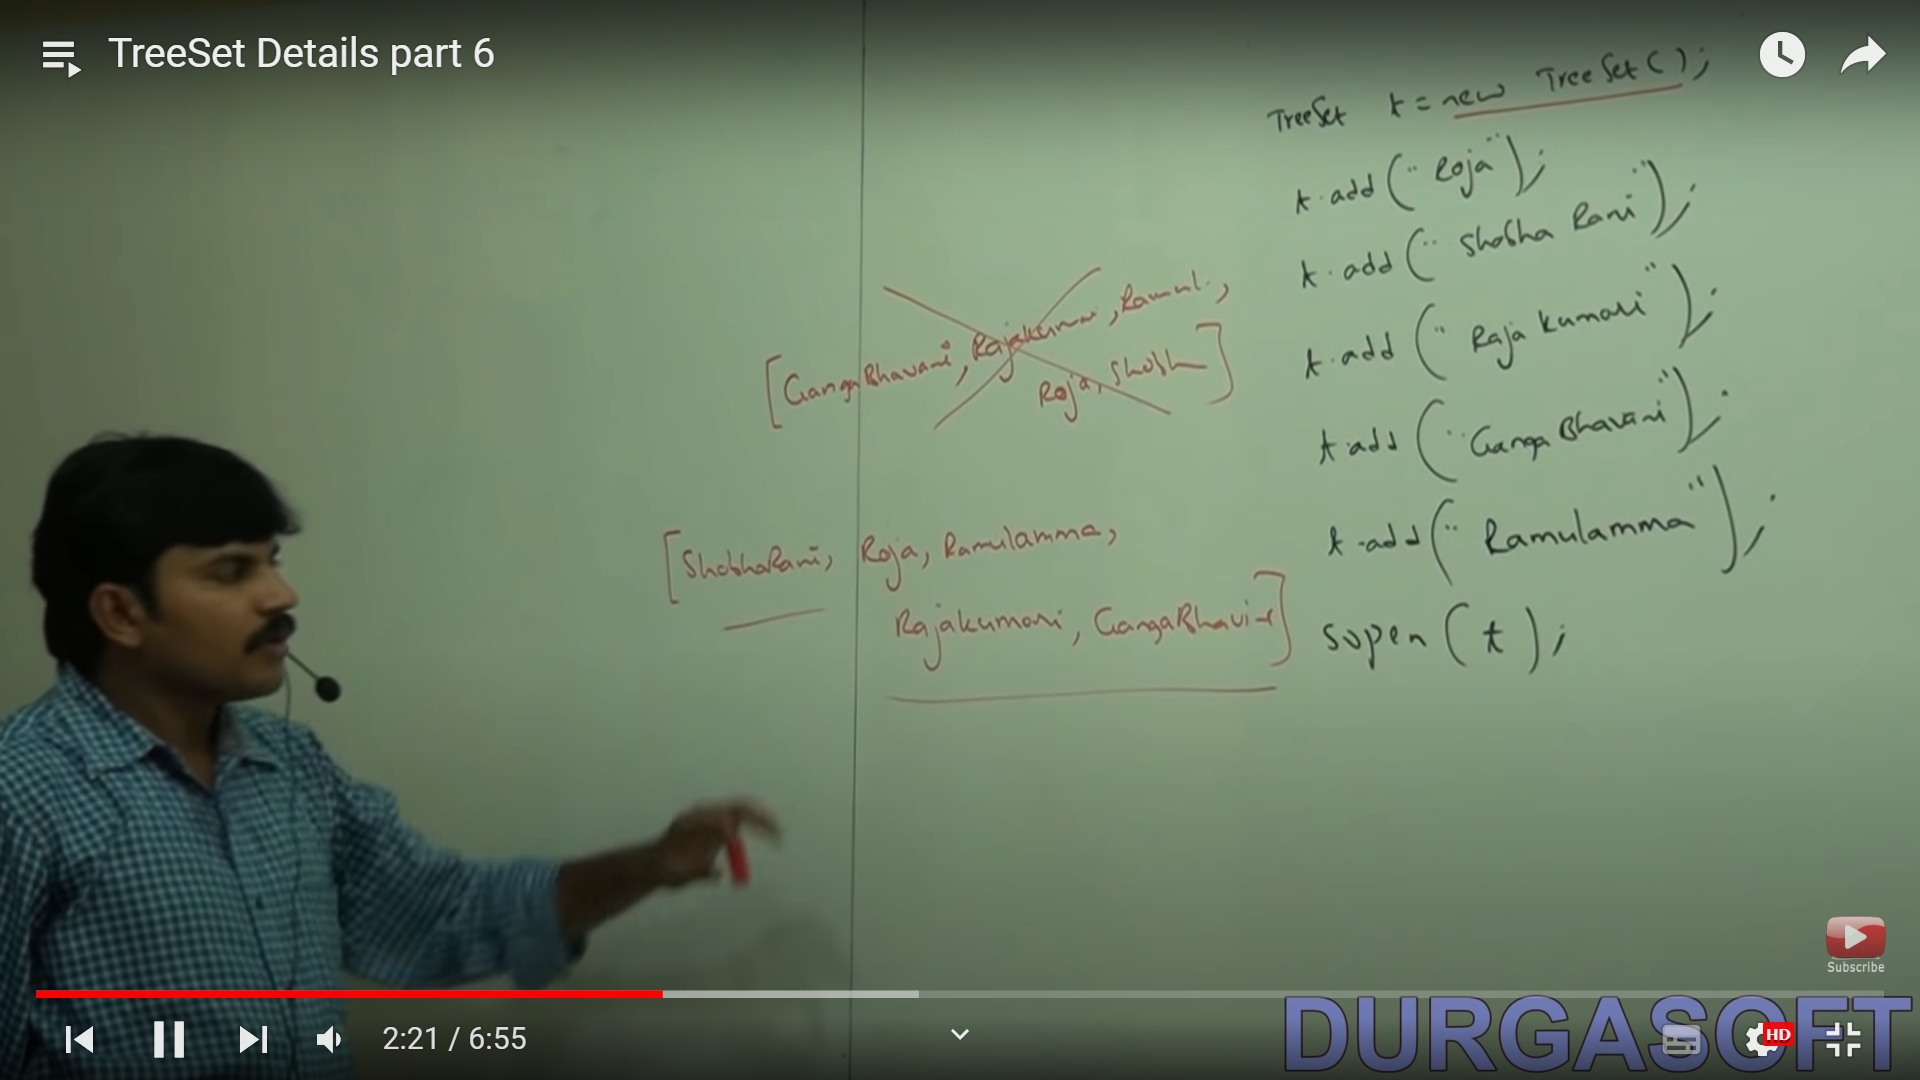 TreeSet Details part 6
TreeSet t = new TreeSet();
t.add("Roja");
t.add("Shobha Rani");
t.add("Raja Kumari");
t.add("Ganga Bhavani");
t.add("Ramulamma");
sopln(t);
[GangaBhavani, Rajakumari, Ramul.,
Roja, Shobh]
[ShobhaRani, Roja, Ramulamma,
Rajakumari, GangaBhavi]
Subscribe
2:21 / 6:55
HD
DURGASOFT